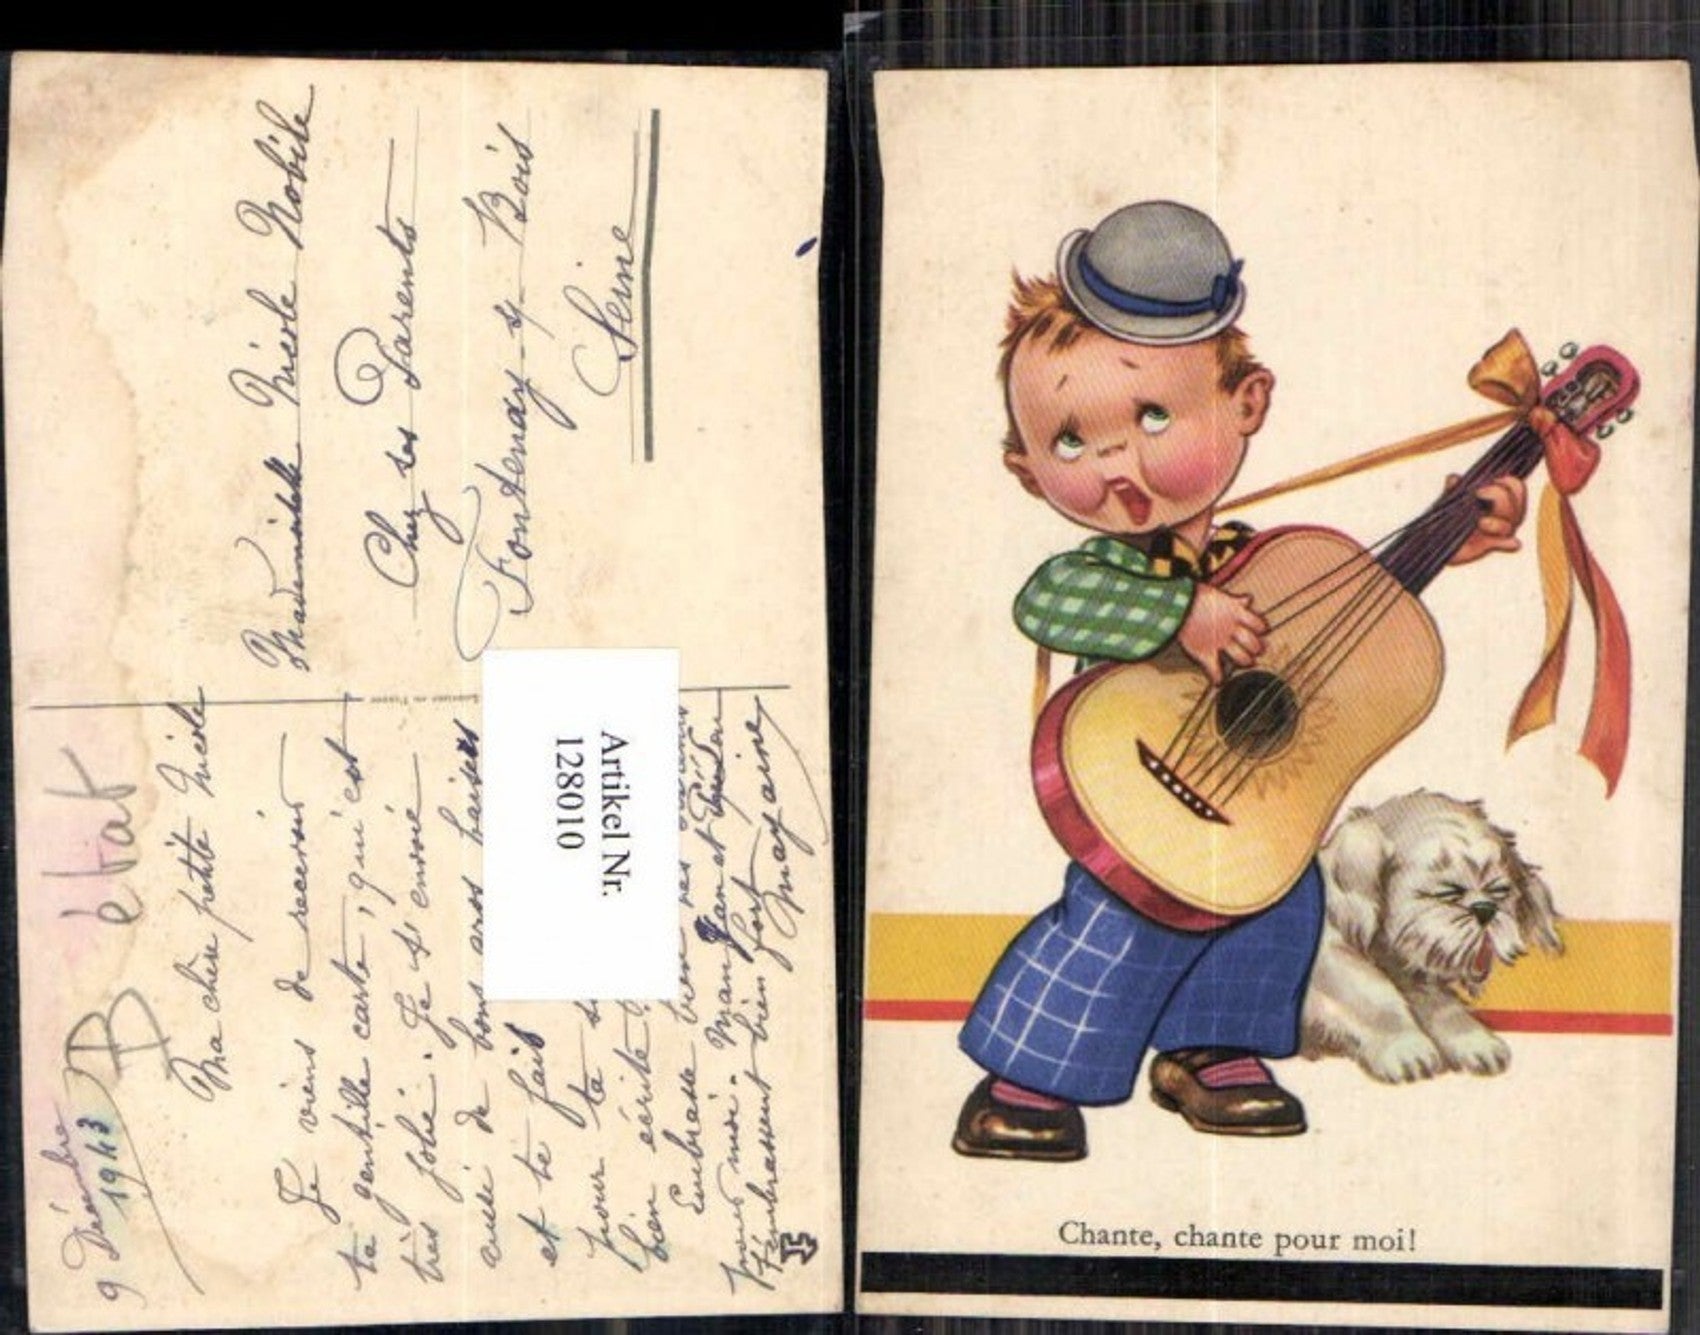 9 Décembre
1943
B état
Ma chère petite Nicole
Je viens de recevoir
ta gentille carte, qui est
très jolie. Je t'envoie
aussi de bons gros baisers
et te fais
pour ta
bien écrite
Embrasse bien
pour moi. Maman et
t'embrassent bien fort
Mademoiselle Nicole Nobile
Chez ses Parents
Fontenay-s/-Bois
Seine
Artikel Nr.
128010
Chante, chante pour moi!